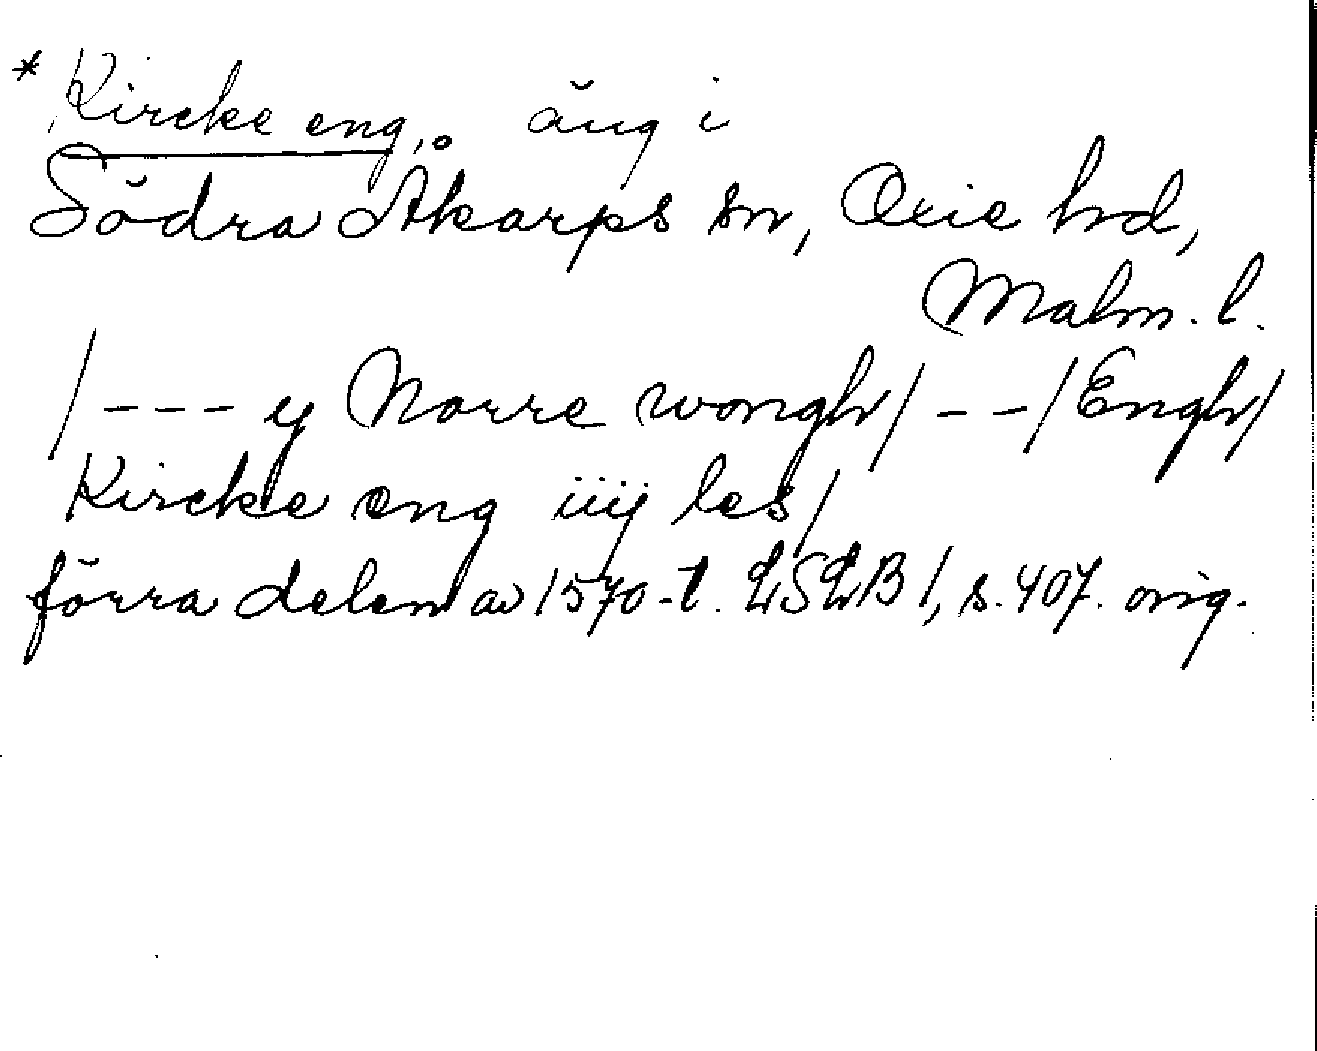 * Kircke eng, äng i
Södra Åkarps sn, Oxie hd,
Malm. l.
/--- y Norre wongh/ --/Engh/
Kircke eng iiij les/
förra delen av 1570-t. LSLB 1, s. 407. orig.